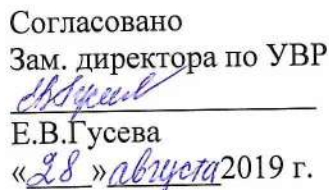 Согласовано
Зам. директора по УВР
Е.В.Гусева
«28» августа 2019 г.